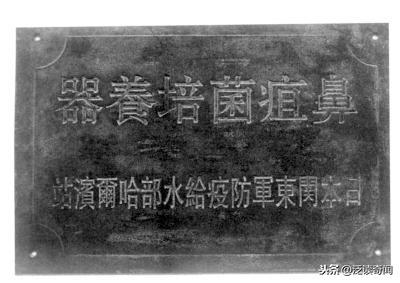 鼻疽菌培養器
日本関東軍防疫給水部哈爾濱站
头条